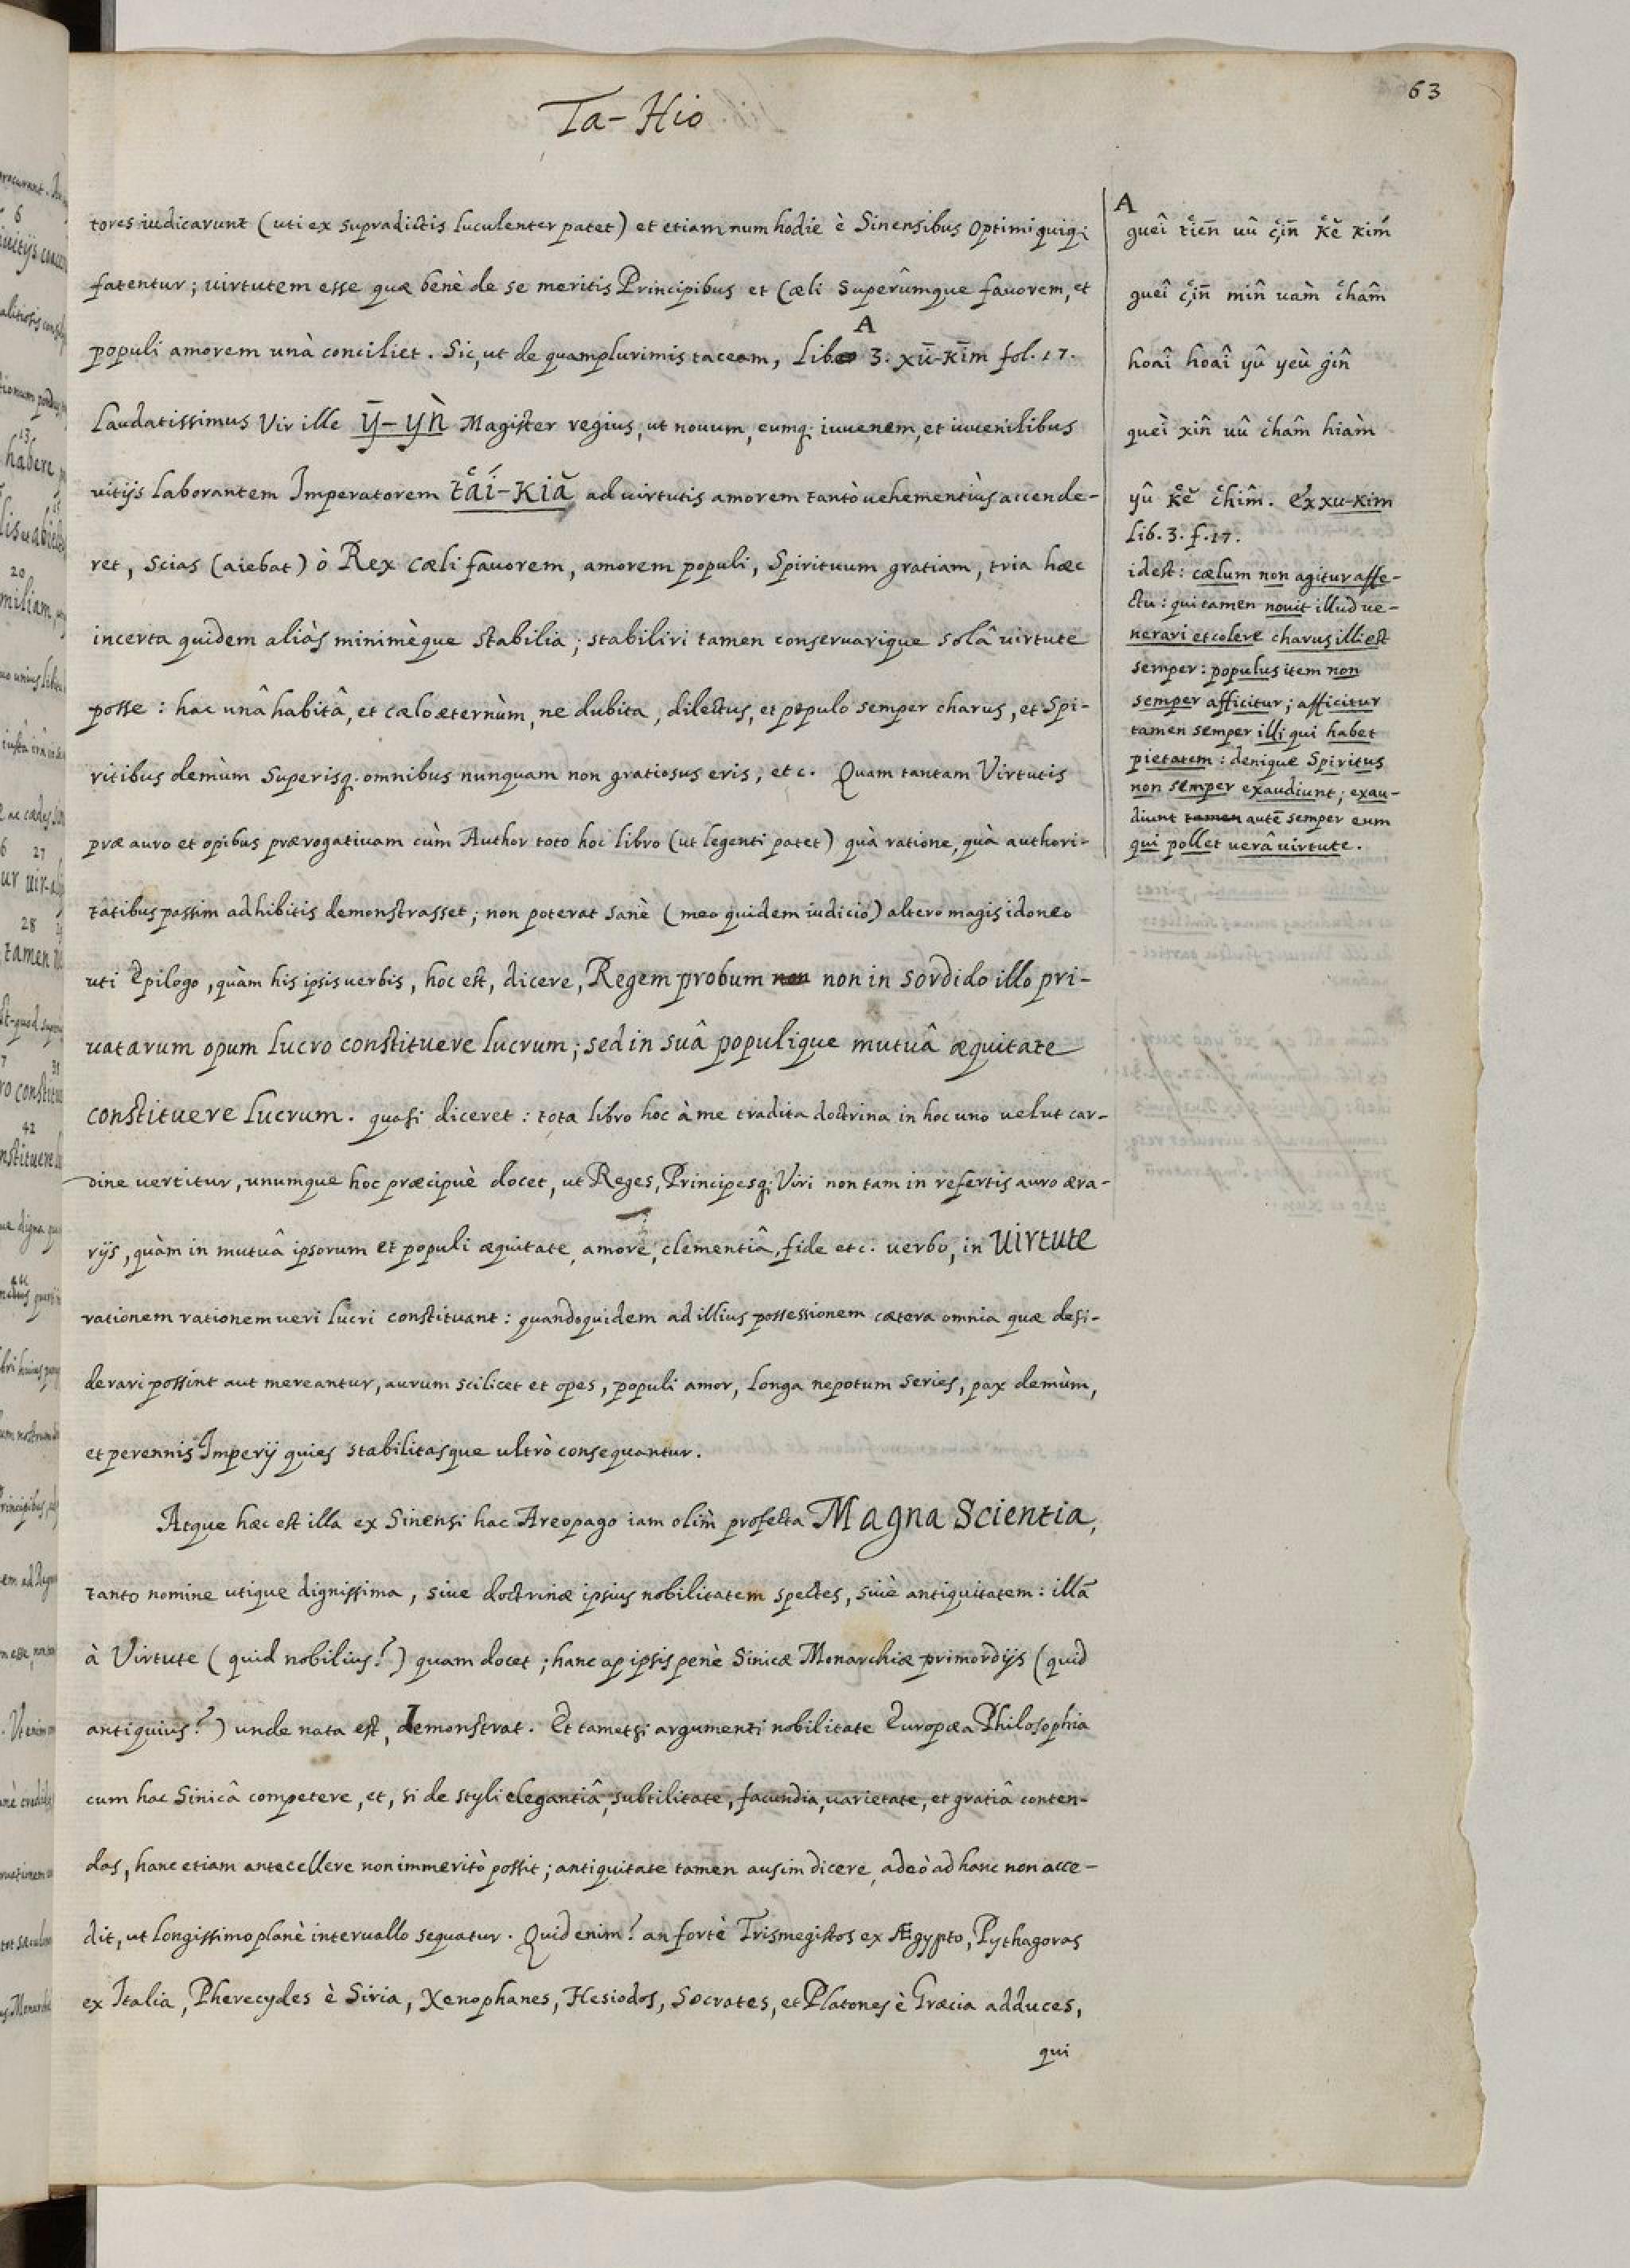 63
Ta-Hio
tores iudicarunt (uti ex supradictis luculenter patet) et etiam num hodie è Sinensibus optimi quiq;
fatentur; uirtutem esse quæ benè de se meritis Principibus et Cæli Superûmque fauorem, et
populi amorem unà conciliet. Sic, ut de quamplurimis taceam, Lib. 3. xū-kīm fol. 17.
A
Laudatissimus Vir ille ȳ-yǹ Magister regius, ut nouum, eumq; iuuenem, et iuuenilibus
uitijs laborantem Imperatorem t̔ái-kiă ad uirtutis amorem tantò uehementiùs accende-
ret, Scias (aiebat) ò Rex cæli fauorem, amorem populi, Spirituum gratiam, tria hæc
incerta quidem aliàs minimèque stabilia; stabiliri tamen conseruarique solâ uirtute
posse: hac unâ habitâ, et cælo æternùm, ne dubita, dilectus, et populo semper charus, et Spi-
ritibus demùm Superisq; omnibus nunquam non gratiosus eris, etc. Quam tantam Virtutis
præ auro et opibus prærogatiuam cùm Author toto hoc libro (ut legenti patet) quà ratione, quà authori-
tatibus passim adhibitis demonstrasset; non poterat sanè (meo quidem iudicio) altero magis idoneo
uti Epilogo, quàm his ipsis uerbis, hoc est, dicere, Regem probum non non in sordido illo pri-
uatarum opum lucro constituere lucrum; sed in suâ populique mutuâ æquitate
constituere lucrum. quasi diceret: tota libro hoc à me tradita doctrina in hoc uno uelut car-
dine uertitur, unumque hoc præcipuè docet, ut Reges, Principesq; Viri non tam in refertis auro æra-
rijs, quàm in mutuâ ipsorum et populi æquitate, amore, clementiâ, fide etc. uerbo, in Uirtute
rationem rationem ueri lucri constituant: quandoquidem ad illius possessionem cætera omnia quæ desi-
derari possint aut mereantur, aurum scilicet et opes, populi amor, longa nepotum series, pax demùm,
et perennis Imperij quies stabilitasque ultrò consequantur.
Atque hæc est illa ex Sinensi hac Areopago iam olim̀ profecta Magna Scientia,
tanto nomine utique dignissima, siue doctrinæ ipsius nobilitatem spectes, siuè antiquitatem: illā
à Virtute (quid nobilius?) quam docet; hanc ap ipsis penè Sinicæ Monarchiæ primordijs (quid
antiquius?) unde nata est, demonstrat. Et tametsi argumenti nobilitate Europæa Philosophia
cum hac Sinicâ competere, et, si de styli elegantiâ, subtilitate, facundia, uarietate, et gratiâ conten-
das, hanc etiam antecellere non immeritò possit; antiquitate tamen ausim dicere, adeò ad hanc non acce-
dit, ut longissimo planè interuallo sequatur. Quid enim? an fortè Trismegistos ex Ægypto, Pythagoras
ex Italia, Pherecydes è Siria, Xenophanes, Hesiodos, Socrates, et Platones è Græcia adduces,
qui
A
gueî t̔ień uû ç̔iñ k̔ĕ kiḿ
gueî ç̔iñ min̂ uàm c̔ham̂
hoaî hoaî yû yeù gin̂
queì xin̂ uû c̔ham̂ hiàm
yû k̔ĕ c̔him̂. Ex xu-kim
Lib. 3. f. 17.
idest: cælum non agitur affe-
ctu: qui tamen nouit illud ue-
nerari et colere charus illi est
semper: populus item non
semper afficitur; afficitur
tamen semper illi qui habet
pietatem: denique Spiritus
non semper exaudiunt; exau-
diunt tamen autē semper eum
qui pollet uerâ uirtute.